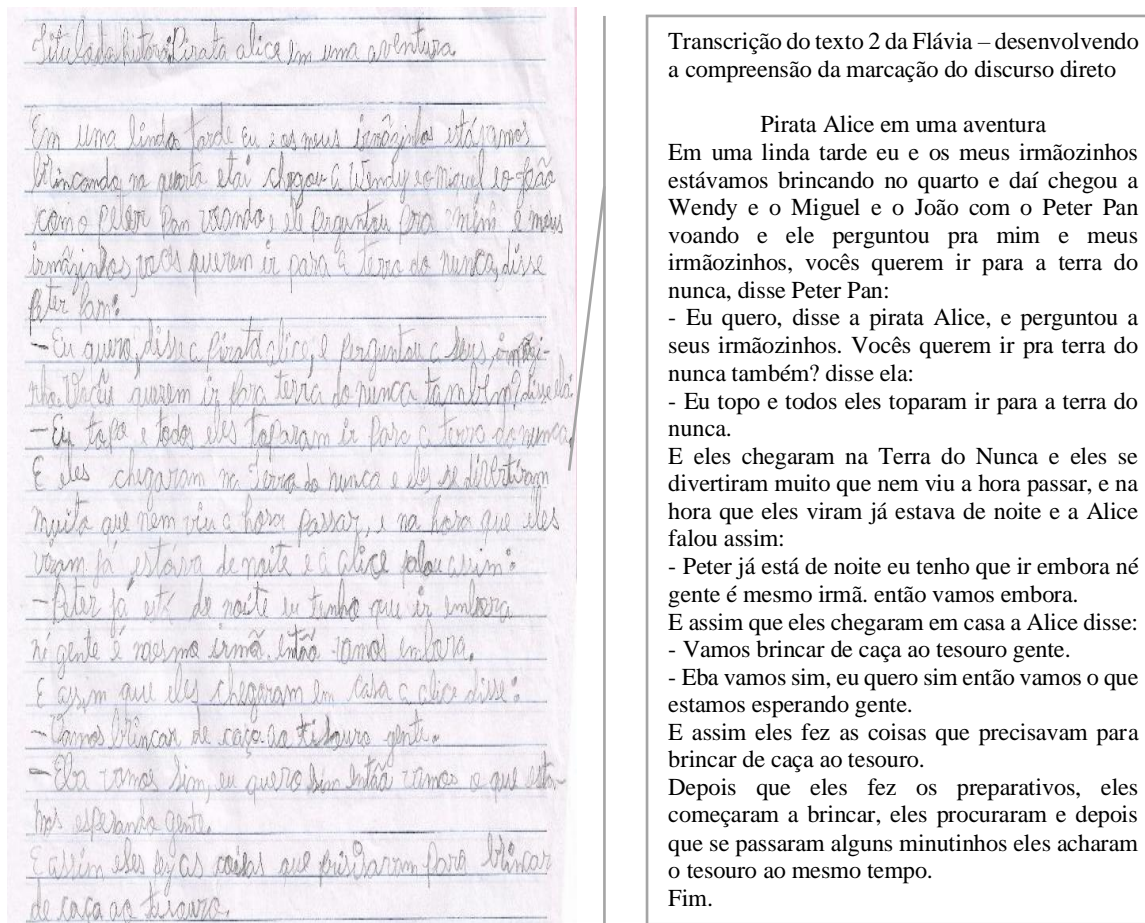 Titulo da hitora: Pirata alice em uma aventura
Em uma linda tarde eu e os meus irmãozinhos estávamos
brincando no quarto e tai chegou a Wendy e o miguel e o João
com o Peter Pan voando e ele perguntou pra mim e meus
irmãozinhos, vocês querem ir para a terra do nunca, disse
Peter Pam:
— Eu quero, disse a Pirata alice, e perguntou a seus irmãozi-
nhos. Vocês querem ir pra terra do nunca tambem? disse ela:
— Eu topo e todos eles toparam ir para a terra do nunca.
E eles chegaram na Terra do nunca e eles se divertiram
muito que nem viu a hora passar, e na hora que eles
viram já estava de noite e a alice falou assim:
— Peter já está de noite eu tenho que ir embora
né gente é mesmo irmã. então vamos embora.
E assim que eles chegaram em casa a alice disse:
— Vamos brincar de caça ao tisouro gente.
— Eba vamos sim, eu quero sim então vamos o que esta-
mos esperando gente.
E assim eles fez as coisas que prisizavam para brincar
de caça ao tisouro.
Transcrição do texto 2 da Flávia – desenvolvendo
a compreensão da marcação do discurso direto
Pirata Alice em uma aventura
Em uma linda tarde eu e os meus irmãozinhos
estávamos brincando no quarto e daí chegou a
Wendy e o Miguel e o João com o Peter Pan
voando e ele perguntou pra mim e meus
irmãozinhos, vocês querem ir para a terra do
nunca, disse Peter Pan:
- Eu quero, disse a pirata Alice, e perguntou a
seus irmãozinhos. Vocês querem ir pra terra do
nunca também? disse ela:
- Eu topo e todos eles toparam ir para a terra do
nunca.
E eles chegaram na Terra do Nunca e eles se
divertiram muito que nem viu a hora passar, e na
hora que eles viram já estava de noite e a Alice
falou assim:
- Peter já está de noite eu tenho que ir embora né
gente é mesmo irmã. então vamos embora.
E assim que eles chegaram em casa a Alice disse:
- Vamos brincar de caça ao tesouro gente.
- Eba vamos sim, eu quero sim então vamos o que
estamos esperando gente.
E assim eles fez as coisas que precisavam para
brincar de caça ao tesouro.
Depois que eles fez os preparativos, eles
começaram a brincar, eles procuraram e depois
que se passaram alguns minutinhos eles acharam
o tesouro ao mesmo tempo.
Fim.